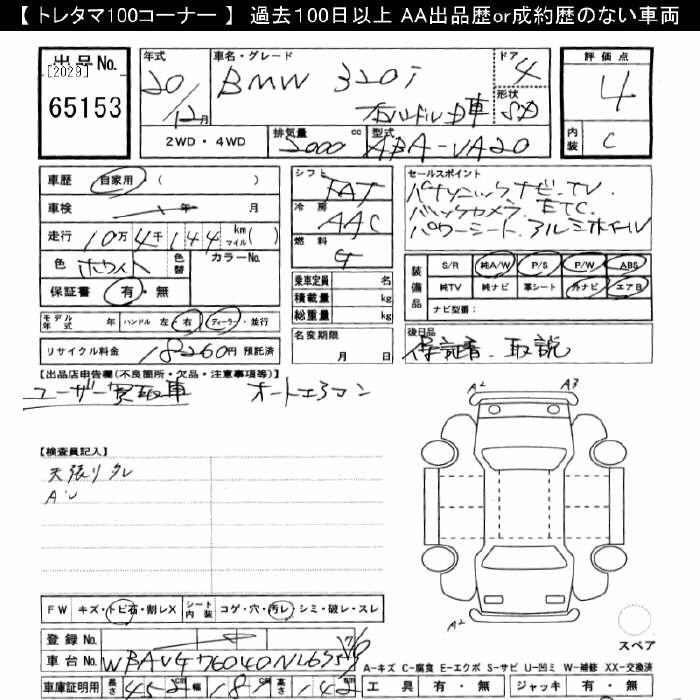 【 トレタマ100コーナー 】 過去100日以上 AA出品歴or成約歴のない車両
出品No.
[2029]
65153
年式
20/12月
車名・グレード
BMW 320i
右ハンドル D車
ドア
4
形状
SD
評価点
4
内装
C
2WD・4WD
排気量
2000 cc
型式
ABA-VA20
車歴
自家用 ( )
車検
年 月
走行
10万4千144 km マイル( )
色
ホワイト
色替
カラーNo.
保証書
有・無
モデル年式
年
ハンドル 左・右
ディーラー・並行
リサイクル料金
18260円 預託済
シフト
FAT
冷房
AAC
燃料
G
乗車定員 名
積載量 kg
総重量 kg
名変期限
月 日
セールスポイント
パナソニックナビ・TV.
バックカメラ ETC.
パワーシート. アルミホイル
装備品
S/R 純A/W P/S P/W ABS
純TV 純ナビ 革シート 外ナビ エアB
ナビ型番:
後日品
保証書. 取説
【出品店申告欄(不良箇所・欠品・注意事項等)】
ユーザー買取車 オートエアコン
【検査員記入】
天張りタレ
AU
A2 A3
A2
スペア
FW キズ・トビ石・割レX
シート内装 コゲ・穴・汚レ・シミ・破レ・スレ
登録No.
車台No.
車庫証明用
長さ 452 cm 幅 181 cm 高さ 142
A-キズ C-腐食 E-エクボ S-サビ U-凹ミ W-補修 XX-交換済
工具 有・無 ジャッキ 有・無